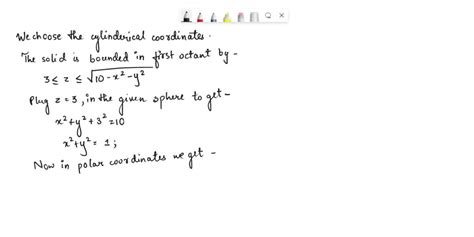 We choose the cylinderical coordinates.
The solid is bounded in first octant by -
3 ≤ z ≤ √(10 - x² - y²)
Plug z = 3, in the given sphere to get -
x² + y² + 3² = 10
x² + y² = 1;
Now in polar coordinates we get -